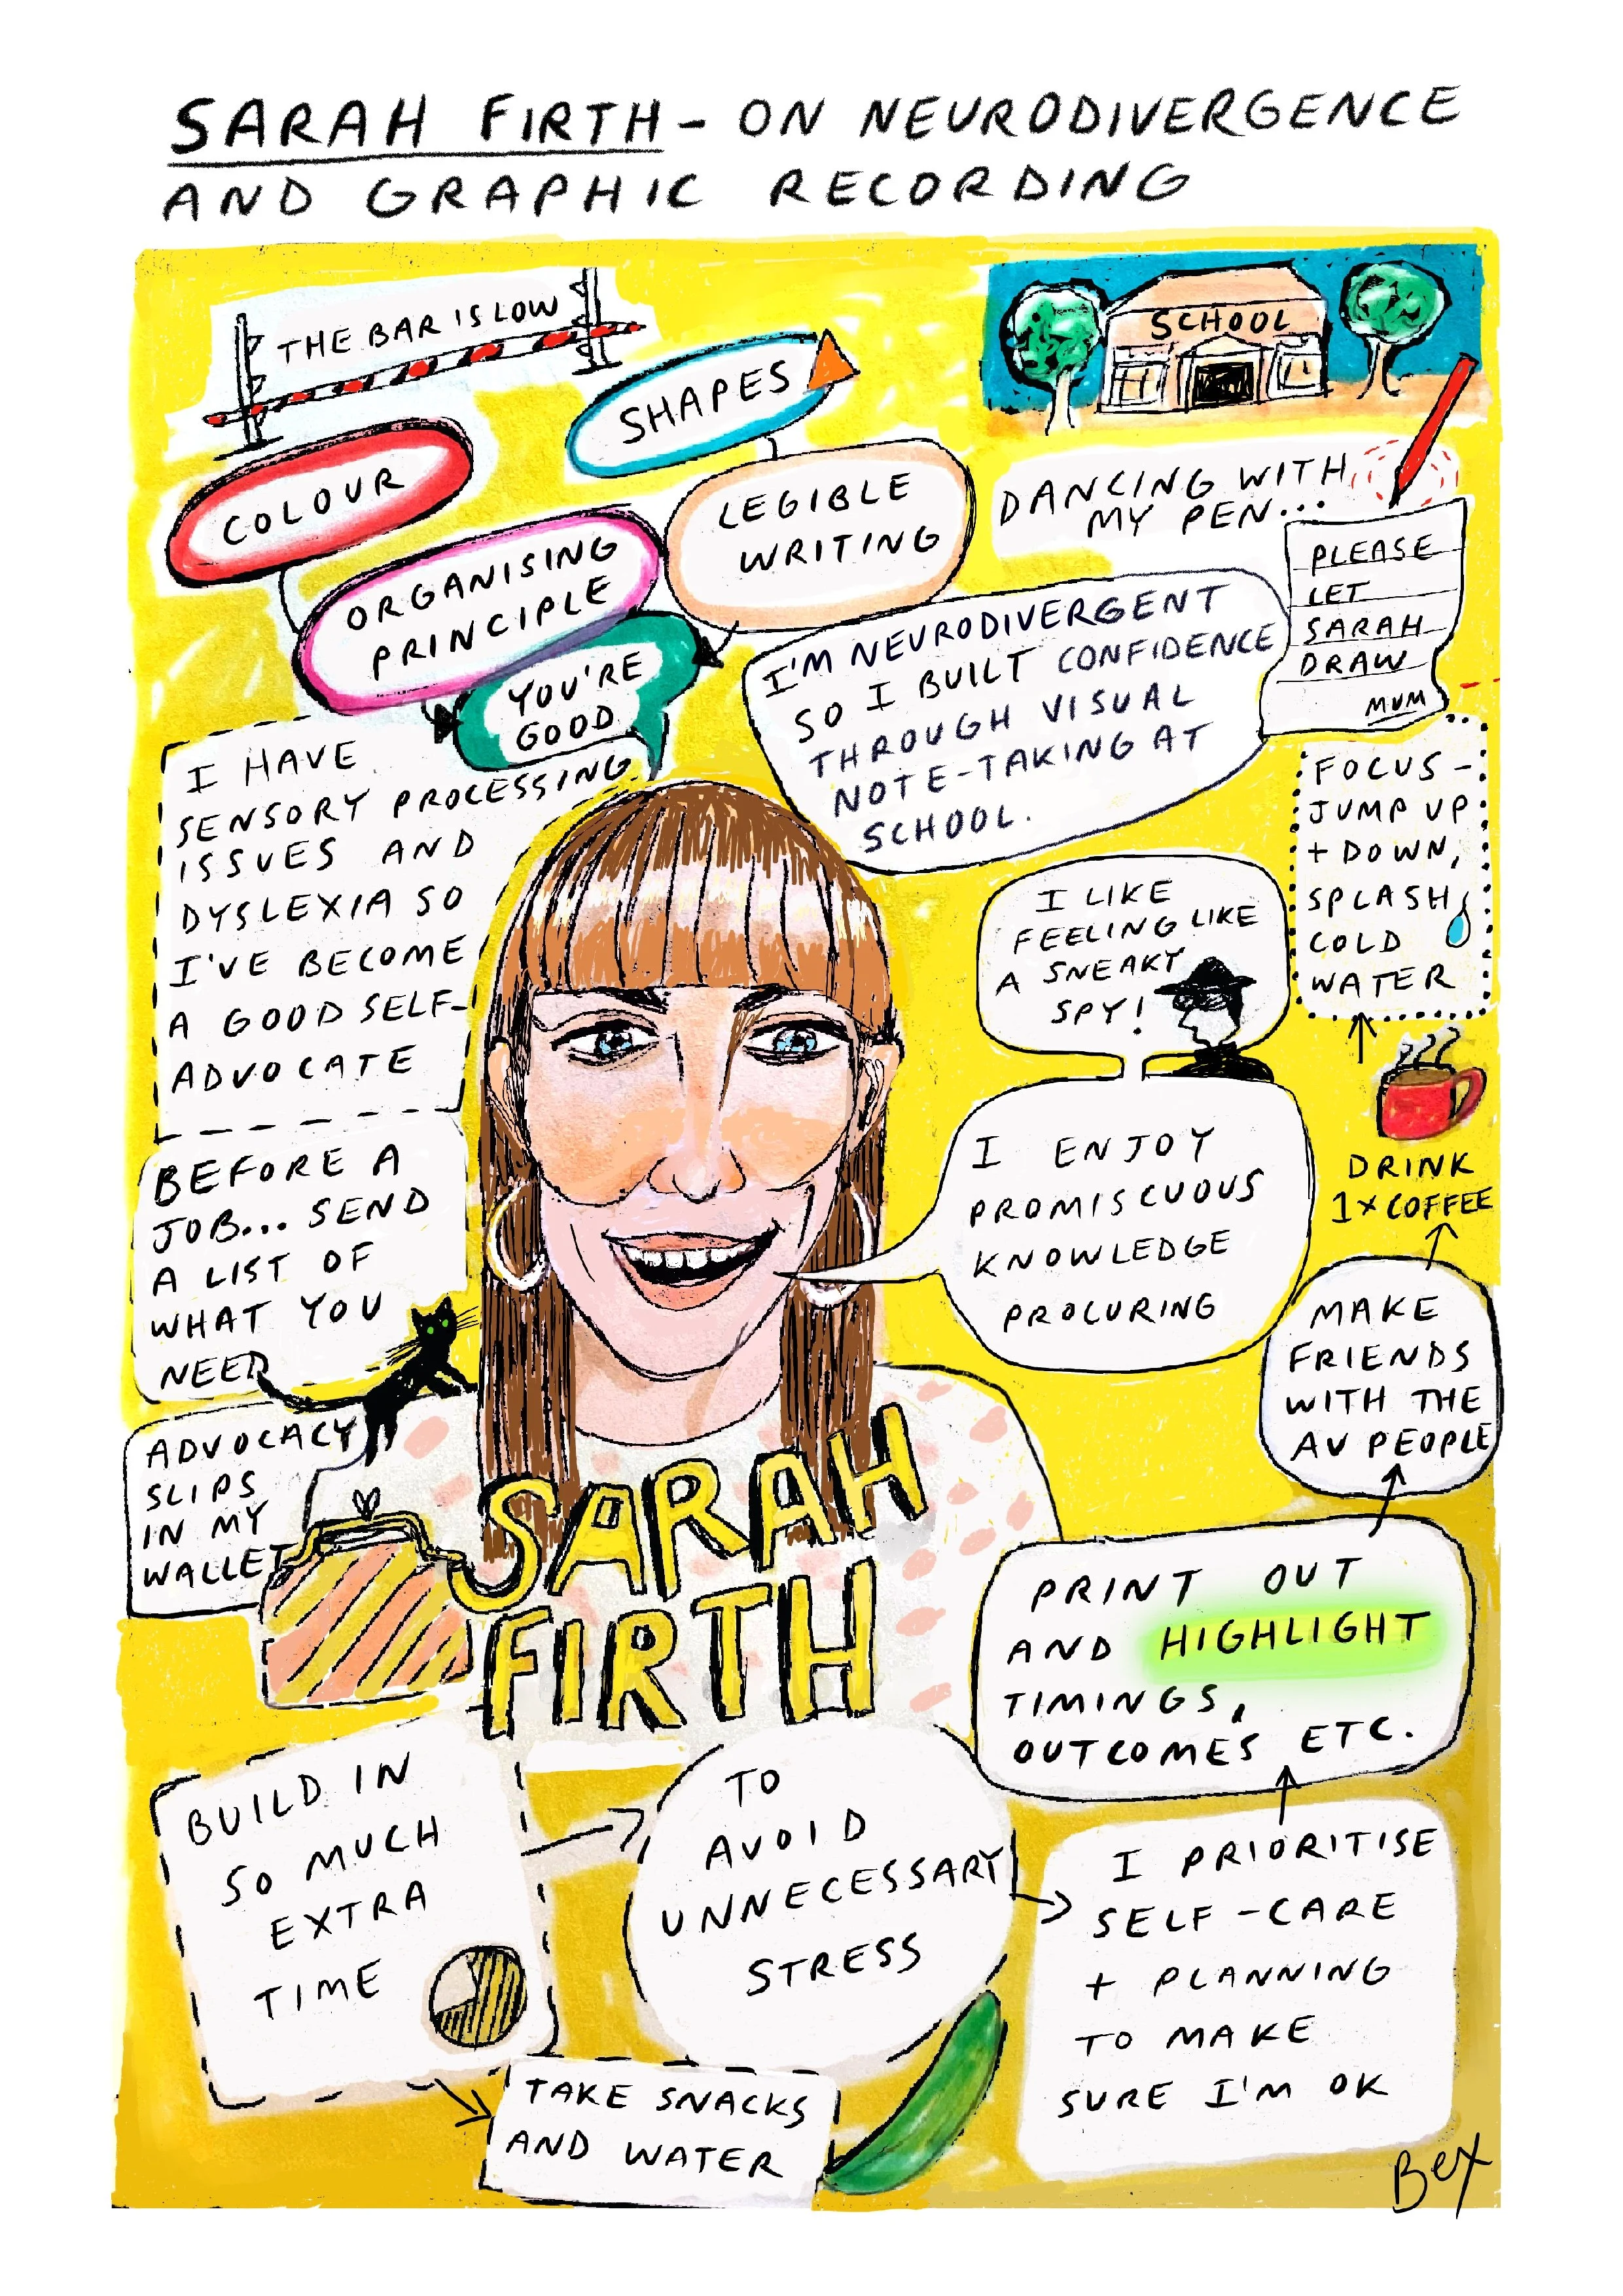 SARAH FIRTH - ON NEURODIVERGENCE
AND GRAPHIC RECORDING
THE BAR IS LOW
SHAPES
COLOUR
LEGIBLE
WRITING
ORGANISING
PRINCIPLE
YOU'RE
GOOD
SCHOOL
DANCING WITH
MY PEN...
PLEASE
LET
SARAH
DRAW
MUM
I'M NEURODIVERGENT
SO I BUILT CONFIDENCE
THROUGH VISUAL
NOTE-TAKING AT
SCHOOL.
I HAVE
SENSORY PROCESSING
ISSUES AND
DYSLEXIA SO
I'VE BECOME
A GOOD SELF-
ADVOCATE
FOCUS -
JUMP UP
+ DOWN,
SPLASH
COLD
WATER
I LIKE
FEELING LIKE
A SNEAKY
SPY!
I ENJOY
PROMISCUOUS
KNOWLEDGE
PROCURING
DRINK
1 x COFFEE
BEFORE A
JOB... SEND
A LIST OF
WHAT YOU
NEED
MAKE
FRIENDS
WITH THE
AV PEOPLE
ADVOCACY
SLIPS
IN MY
WALLET
SARAH
FIRTH
PRINT OUT
AND HIGHLIGHT
TIMINGS,
OUTCOMES ETC.
BUILD IN
SO MUCH
EXTRA
TIME
TO
AVOID
UNNECESSARY
STRESS
I PRIORITISE
SELF-CARE
+ PLANNING
TO MAKE
SURE I'M OK
TAKE SNACKS
AND WATER
Bex